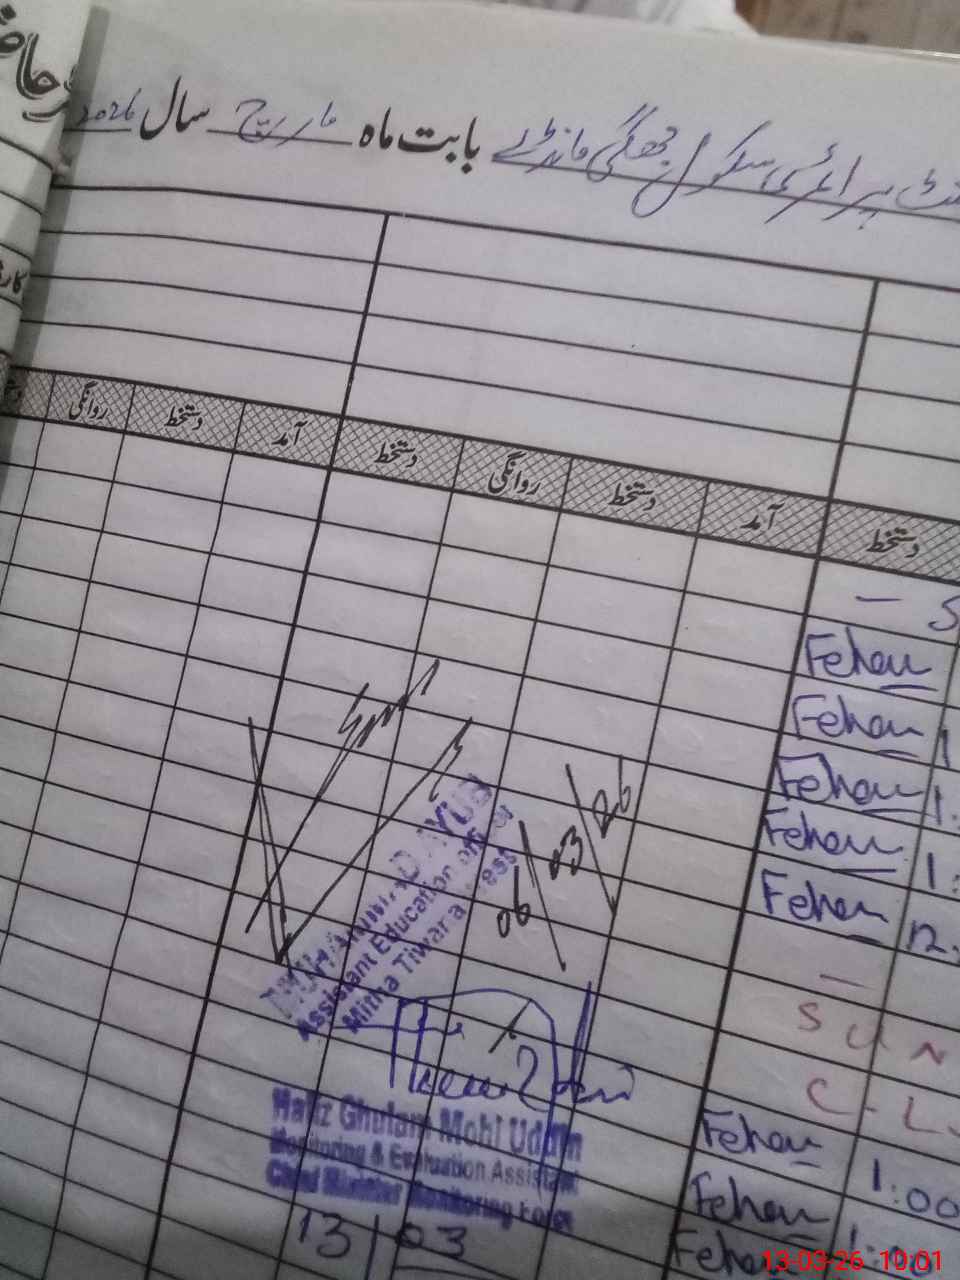 پرائمری سکول جھگی مانڈے بابت ماہ مارچ سال 2026
دستخط آمد دستخط روانگی دستخط آمد دستخط روانگی
Fehan
Fehan
Fehan
Fehan
Fehan 12.
06/03/26
MUHAMMAD AYUB
Assistant Education officer
Mitha Tiwana
SUN
C-L
Fehan 1:00
Fehan 1:00
Fehan
Hafiz Ghulam Mohi Uddin
Monitoring & Evaluation Assistant
Chief Minister Monitoring Force
13/03
13-03-26 10:01